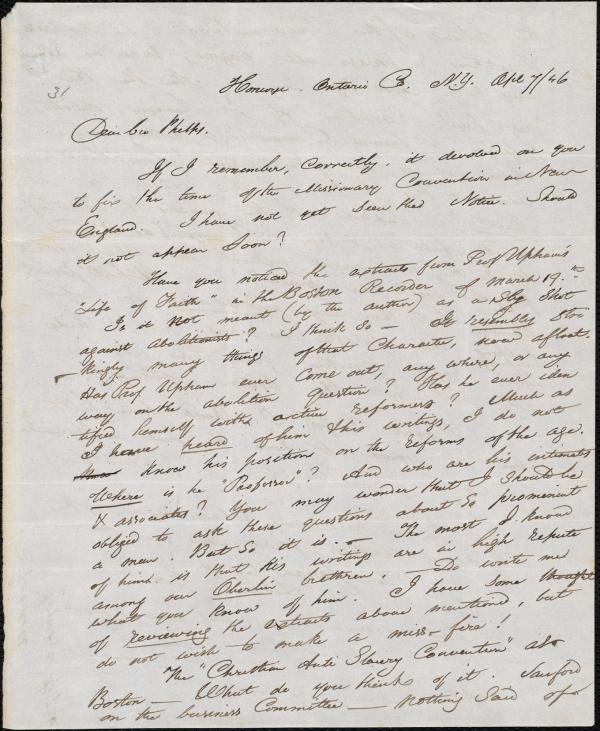 31
Honeoye. Ontario Co. N.Y. Apl 7/46
Dear bro Phelps.
If I remember, correctly, it devolved on you
to fix the time of the Missionary Convention in New
England. I have not yet seen the Notice. Should
it not appear soon?
Have you noticed the extracts from Prof Upham's
"Life of Faith" in the Boston Recorder of March 19.th
Is it not meant (by the author) as a sly shot
against abolitionists? I think so — It resembles stri
-kingly many things of that character, now afloat.
Has Prof Upham ever come out, any where, or any
way on the abolition question? Has he ever iden
tified himself with active reformers? Much as
I have heard of him & his writings, I do not
know his position on the Reforms of the age.
Where is he "Professor"? And who are his intimates
& associates? You may wonder that I should be
obliged to ask these questions about so prominent
a man. But so it is. — The most I know
of him is that his writings are in high repute
among our Oberlin brethren. — Do write me
what you know of him. I have some thought
of reviewing the extracts above mentioned, but
do not wish to make a miss-fire!
The "Christian Anti Slavery Convention" at
Boston — What do you think of it.
on the business Committee — Nothing said of